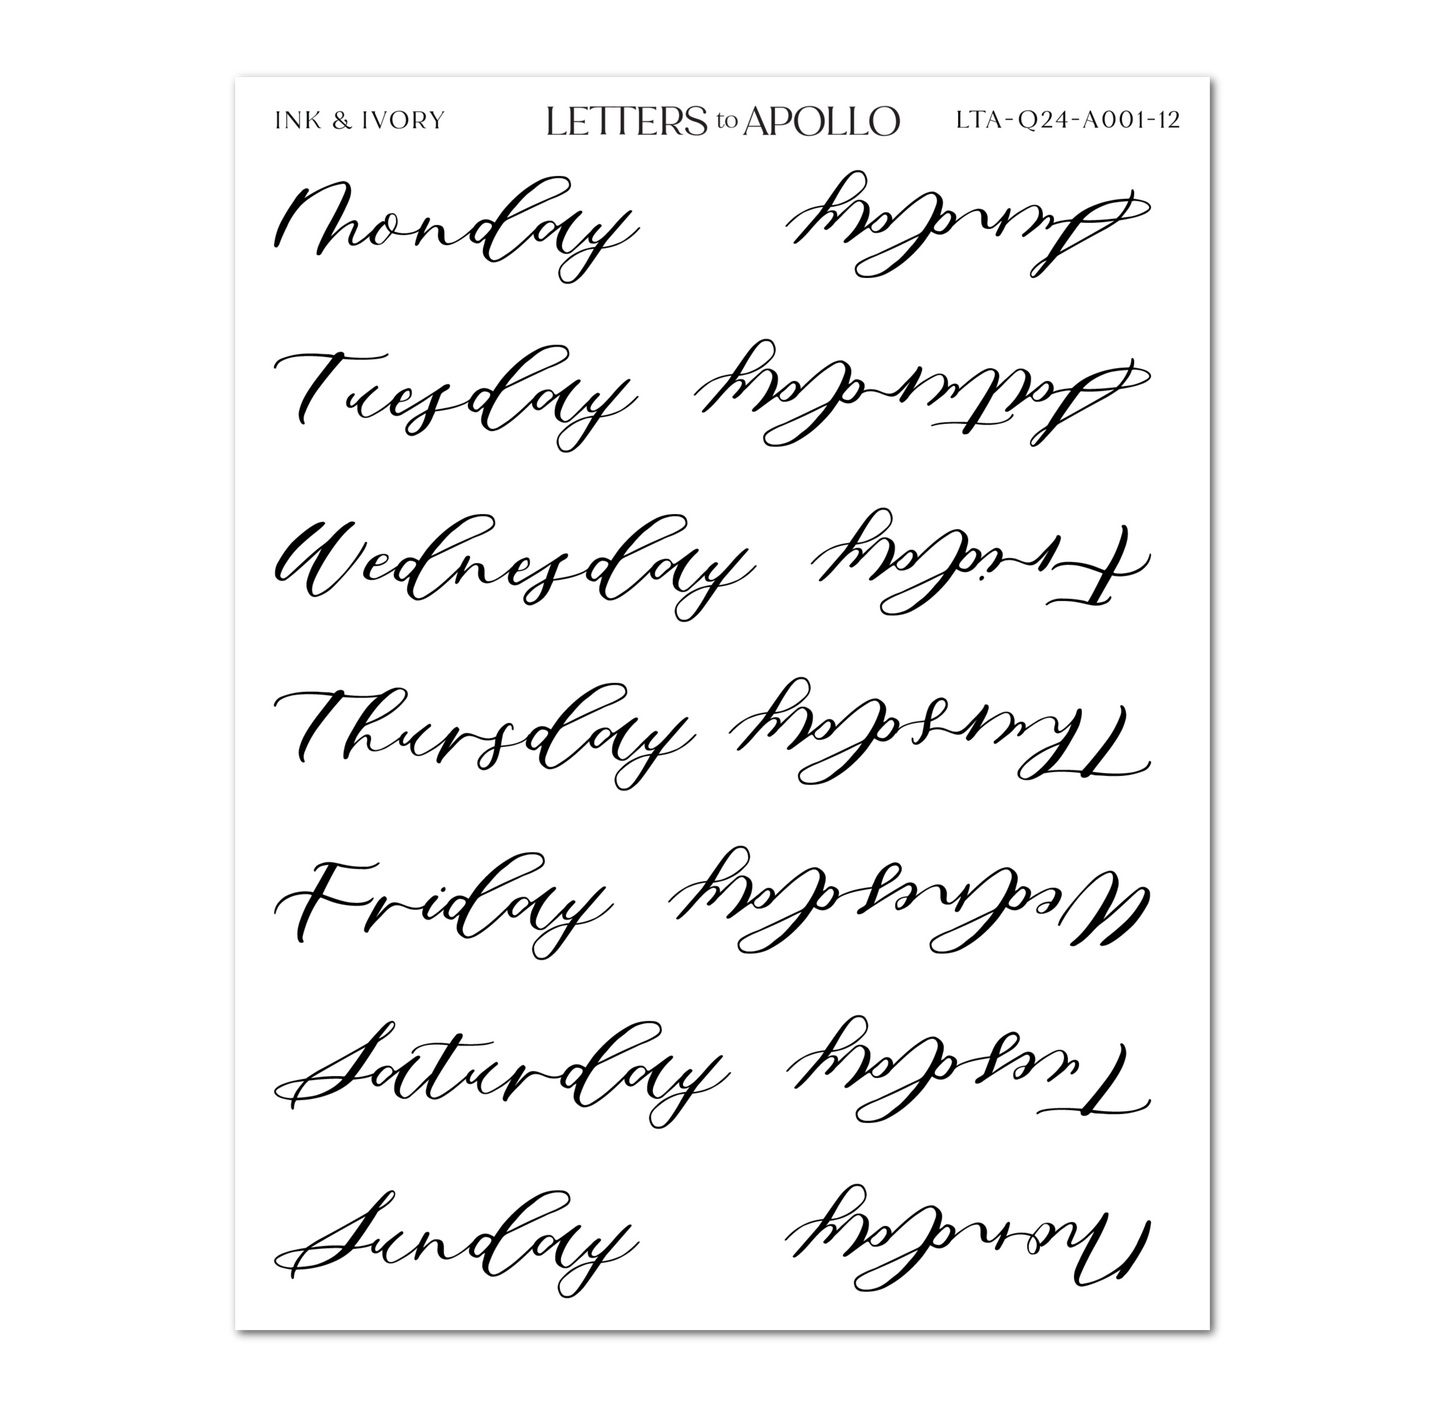 INK & IVORY LETTERS to APOLLO LTA-Q24-A001-12
Monday Sunday
Tuesday Saturday
Wednesday Friday
Thursday Thursday
Friday Wednesday
Saturday Tuesday
Sunday Monday